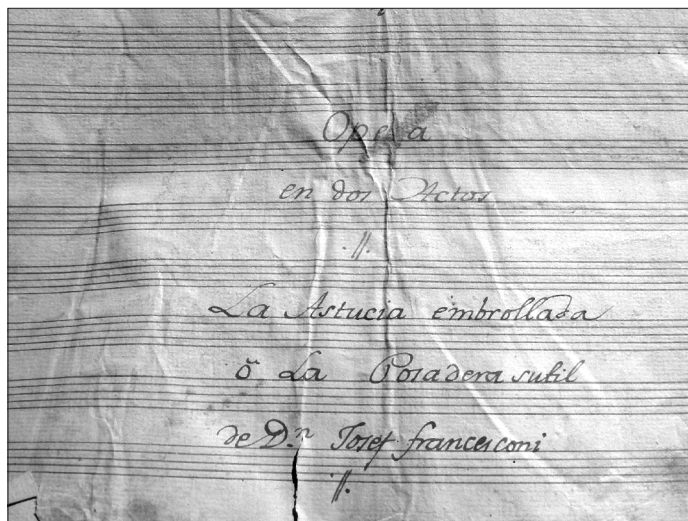 Opera
en dos Actos
La Astucia embrollada
ŏ La Posadera sutil
de D.n Josef francesconi